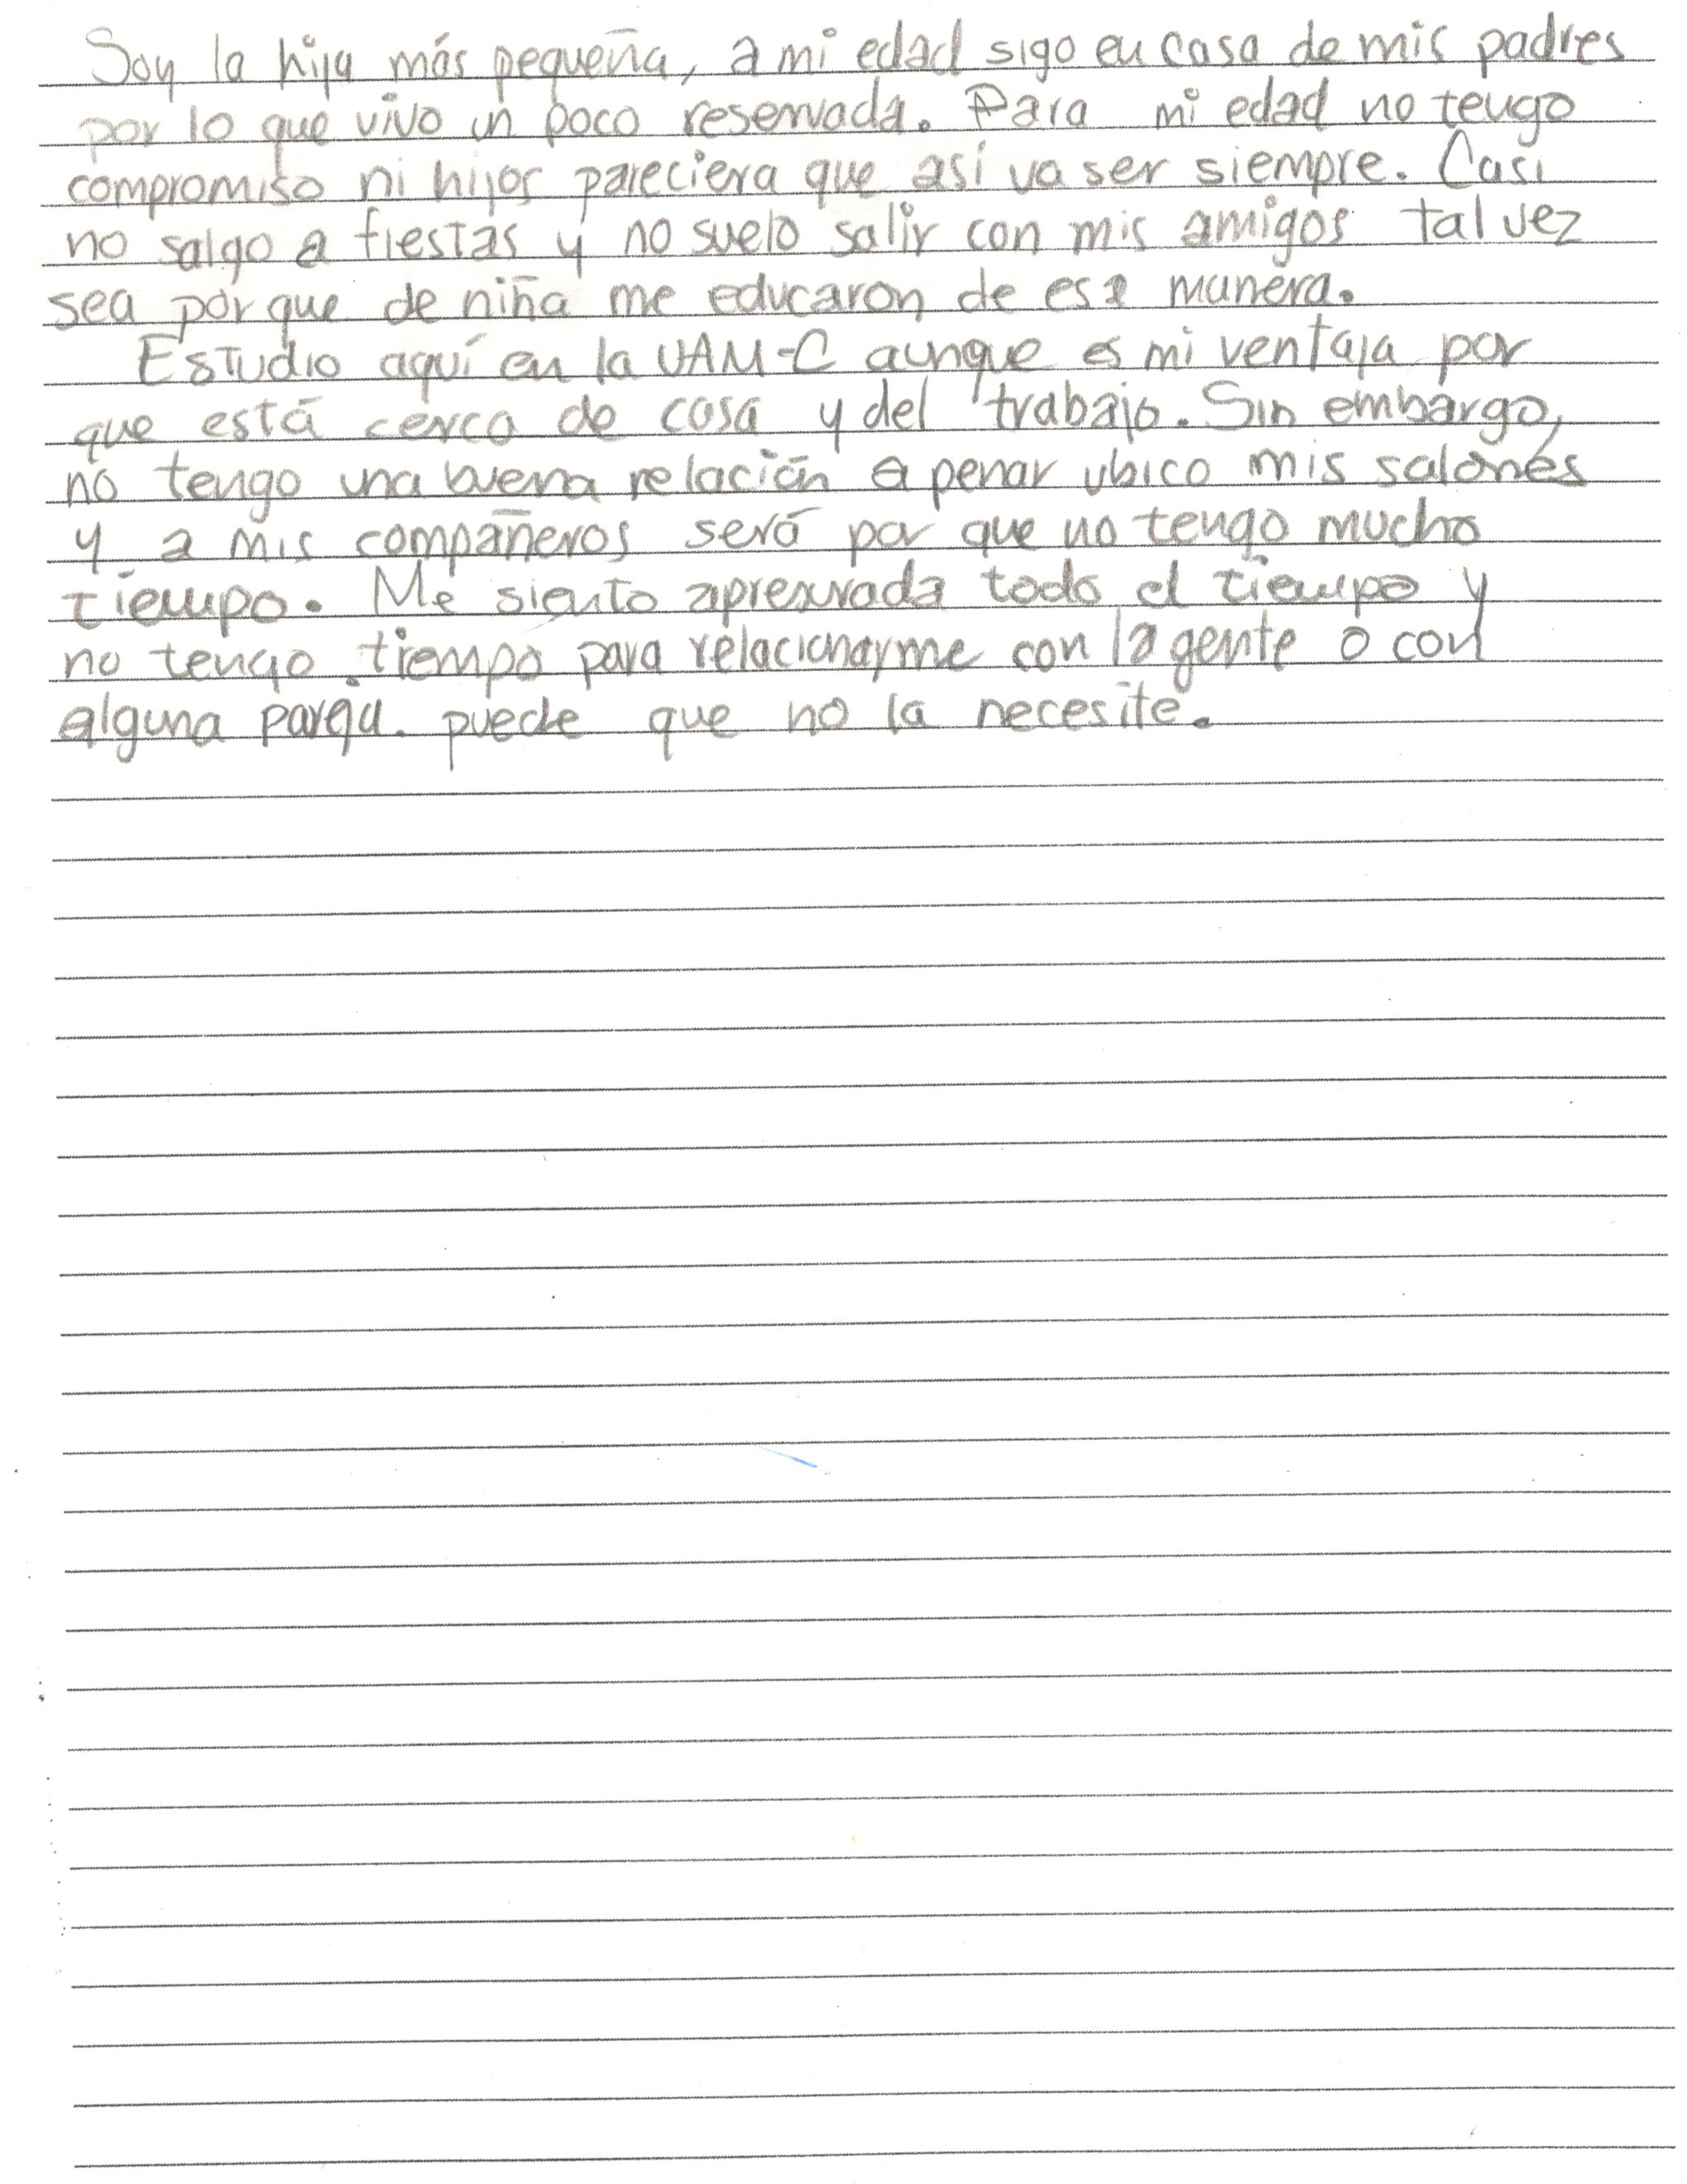 Soy la hija más pequeña, a mi edad sigo en casa de mis padres
por lo que vivo un poco reservada. Para mi edad no tengo
compromiso ni hijos pareciera que así va ser siempre. Casi
no salgo a fiestas y no suelo salir con mis amigos tal vez
sea por que de niña me educaron de esa manera.
Estudio aquí en la UAM-C aunque es mi ventaja por
que está cerca de casa y del trabajo. Sin embargo,
no tengo una buena relación a penar ubico mis salones
y a mis compañeros será por que no tengo mucho
tiempo. Me siento apresurada todo el tiempo y
no tengo tiempo para relacionarme con la gente o con
alguna pareja. puede que no la necesite.